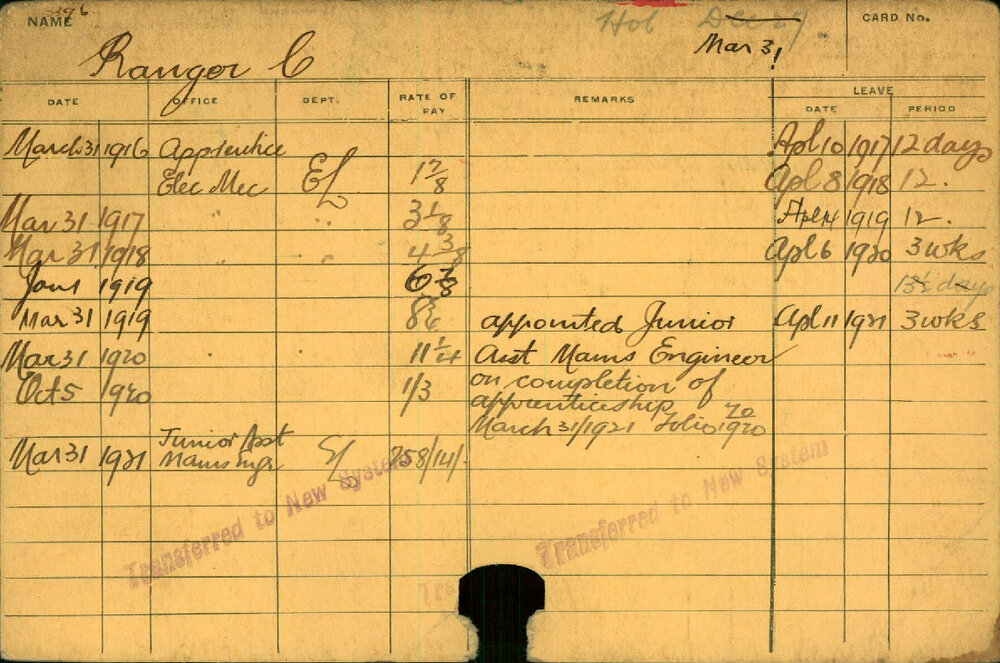 NAME
Hob Dec 27
Mar 31
CARD No.
Ranger C
DATE OFFICE DEPT. RATE OF PAY REMARKS LEAVE
DATE PERIOD
March 31 1916 Apprentice Apl 10 1917 12 days
Elec Mec EL 1 7/8 Apl 8 1918 12.
Mar 31 1917 " " 3 1/8 Apl 14 1919 12.
Mar 31 1918 " " 4 3/8 Apl 6 1920 3 wks
Jan 1 1919 6 7/8 13½ days
Mar 31 1919 8¾ appointed Junior Apl 11 1921 3 wks
Mar 31 1920 11¼ Asst Mains Engineer
Oct 5 1920 1/3 on completion of
apprenticeship
March 31/1921 Folio 70/1920
Junior Asst
Mar 31 1921 Mains Engr EL 258/14/-
Transferred to New System
Transferred to New System